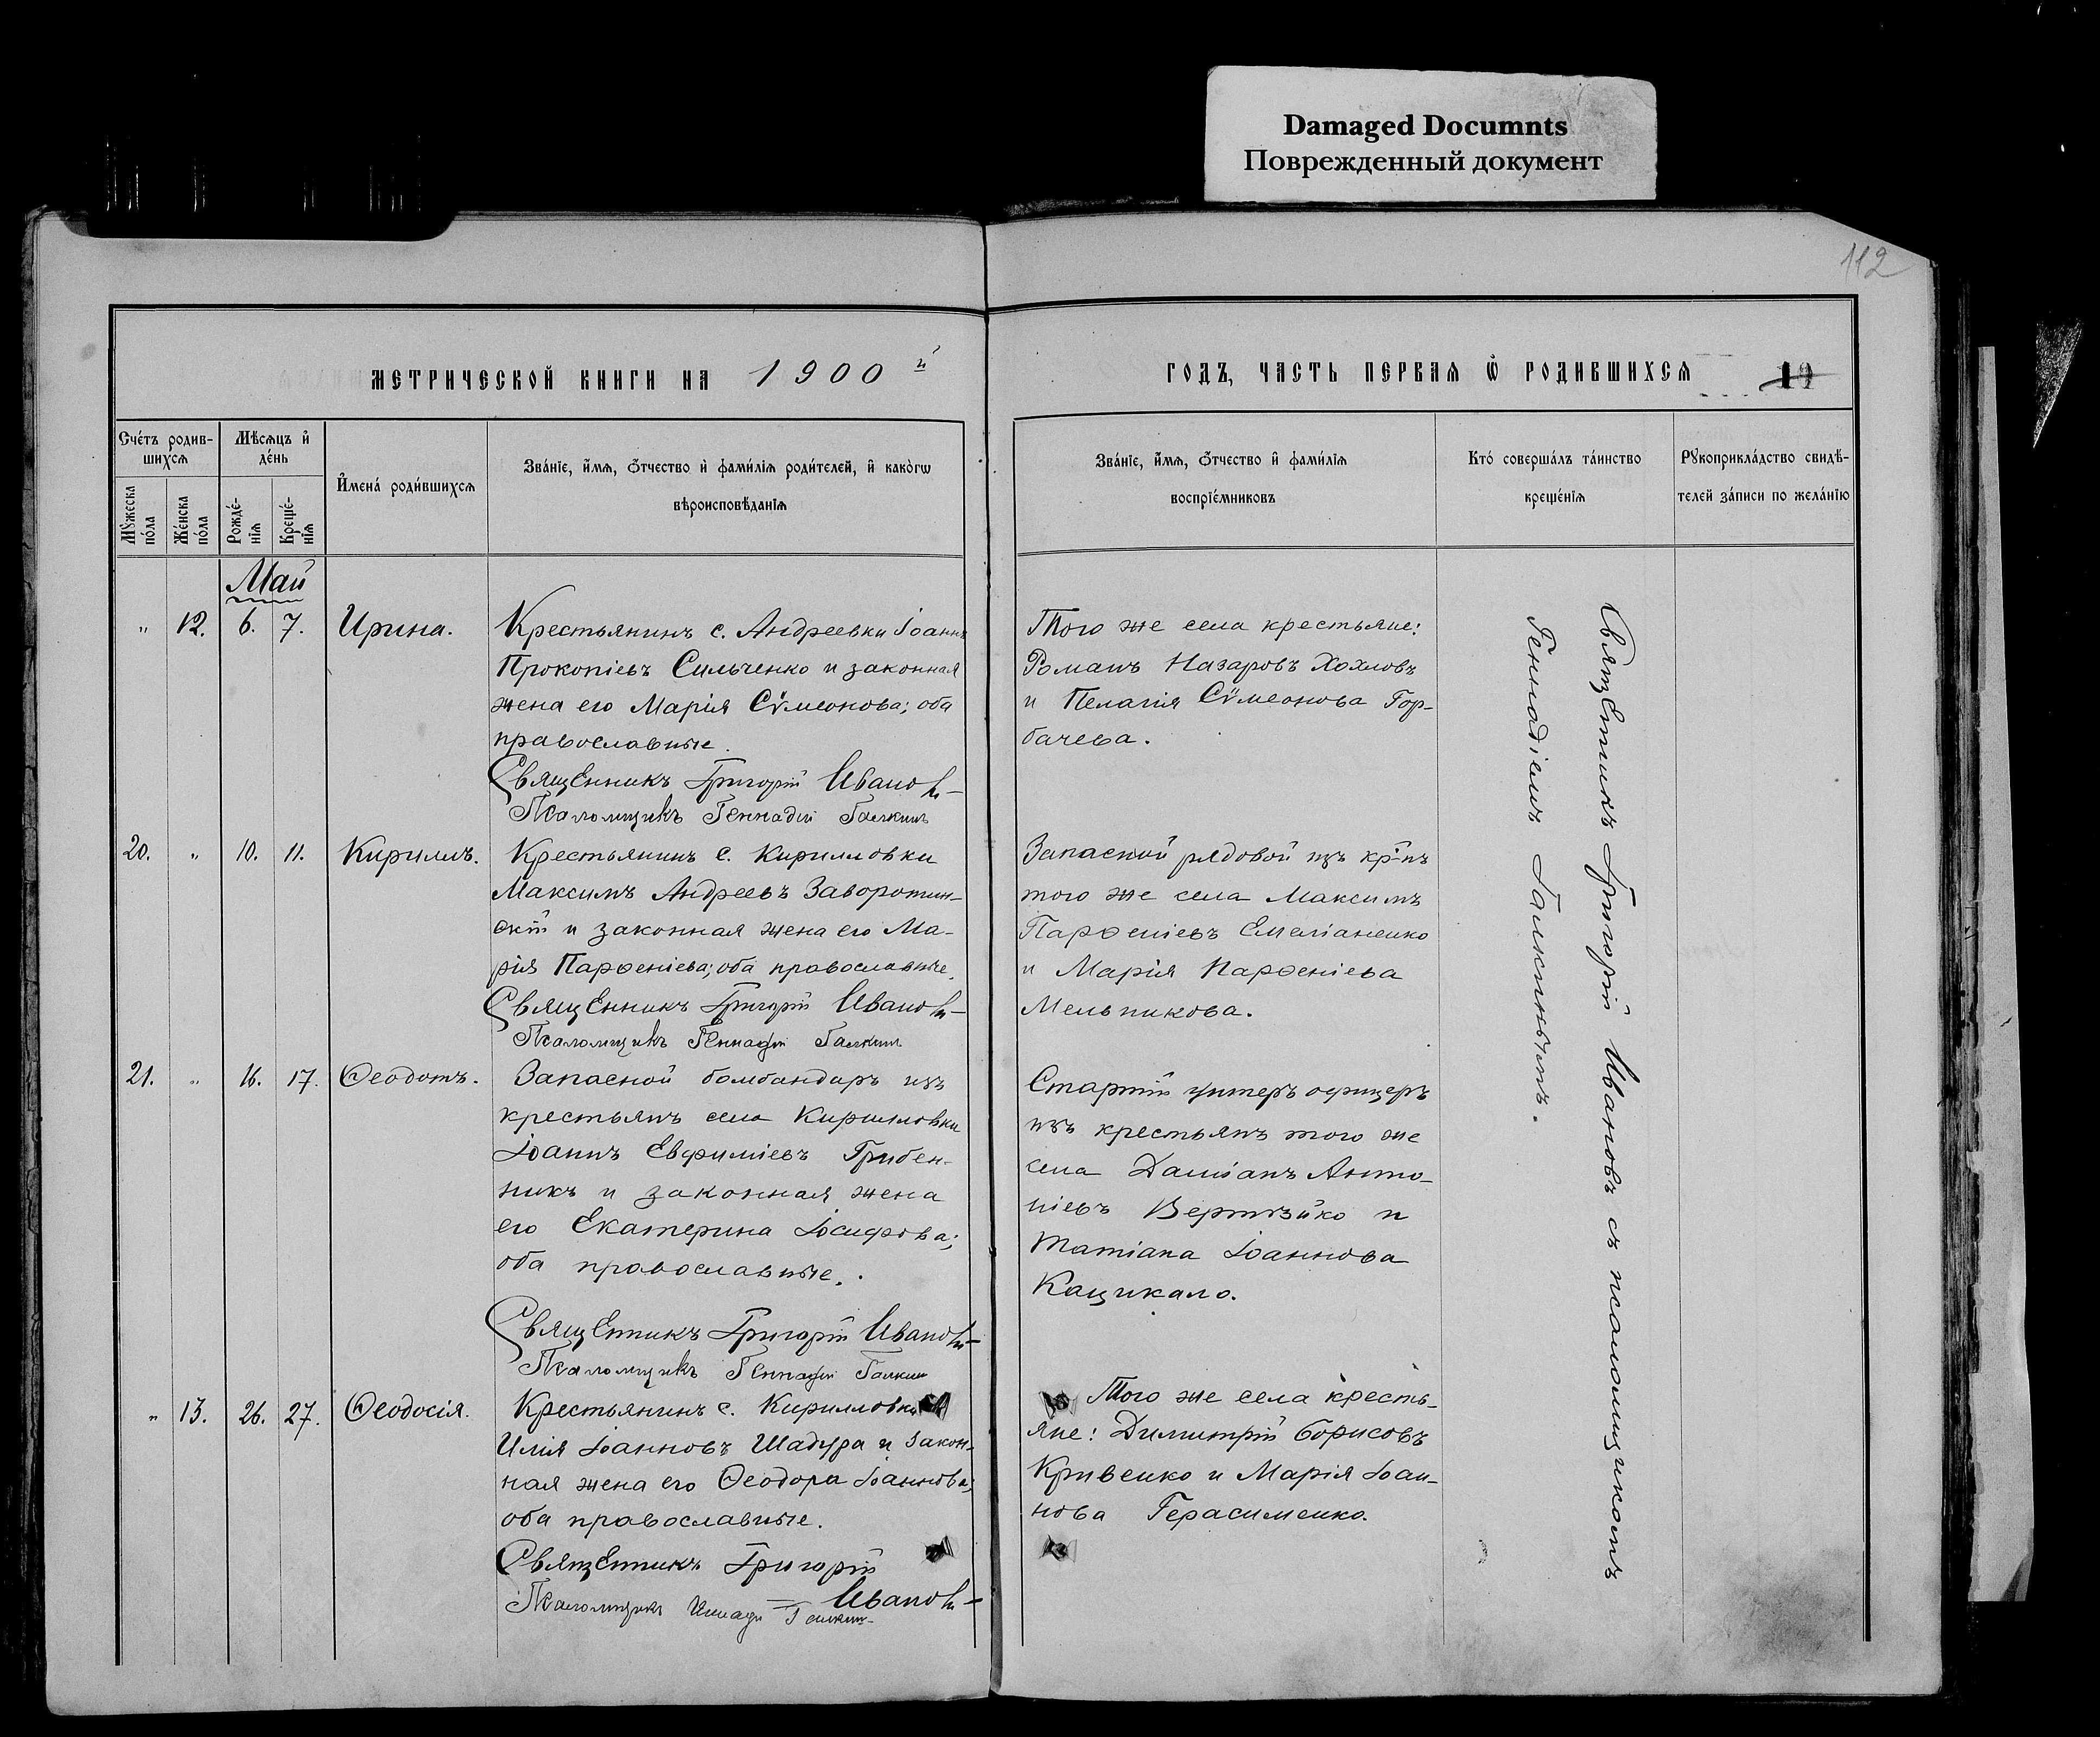 Damaged Documnts
Поврежденный документ
112
МЕТРИЧЕСКОЙ КНИГИ НА 1900 й
ГОДЪ, ЧАСТЬ ПЕРВАЯ Ѿ РОДИВШИХСЯ 19
Сче́тъ родив-
шихсѧ
Мѣсѧцъ и҆
де́нь
Мꙋжеска
по́ла
Же́нска
по́ла
Рожде́-
нїѧ
Креще́-
нїѧ
И҆мена̀ роди́вшихсѧ
Зва́нїе, и҆́мѧ, ѻ҆́тчество и҆ фами́лїѧ роди́телей, и҆ како́гѡ
вѣроисповѣ́данїѧ
Зва́нїе, и҆́мѧ, ѻ҆́тчество и҆ фами́лїѧ
воспрїе́мниковъ
Кто́ соверша́лъ та́инство
креще́нїѧ
Рꙋкоприкла́дство свидѣ́-
телей за́писи по жела́нїю
Май
" 12. 6. 7. Ирина.
Крестьянинъ с. Андреевки Іоаннъ
Прокопіевъ Сильченко и законная
жена его Марія Сѵмеонова; оба
православные.
Священникъ Григорій Ивановъ
Псаломщикъ Геннадій Галкинъ
Того же села крестьяне:
Романъ Назаровъ Хохловъ
и Пелагія Сѵмеонова Гор-
бачева.
20. " 10. 11. Кириллъ.
Крестьянинъ с. Кирилловки
Максимъ Андреевъ Заворотин-
скій и законная жена его Ма-
рія Парѳеніева; оба православные.
Священникъ Григорій Ивановъ
Псаломщикъ Геннадій Галкинъ
Запасной рядовой изъ кр-нъ
того же села Максимъ
Парѳеніевъ Емеліаненко
и Марія Парѳеніева
Мельникова.
21. " 16. 17. Ѳеодотъ.
Запасной бомбандиръ изъ
крестьянъ села Кирилловки
Іоаннъ Евфиміевъ Грибен-
никъ и законная жена
его Екатерина Іосифова;
оба православные.
Священникъ Григорій Ивановъ
Псаломщикъ Геннадій Галкинъ
Старшій унтеръ офицеръ
изъ крестьянъ того же
села Даміанъ Анто-
ніевъ Вертѣйко и
Татіана Іоаннова
Кацикало.
" 13. 26. 27. Ѳеодосія.
Крестьянинъ с. Кирилловки
Илія Іоанновъ Шадура и закон-
ная жена его Ѳеодора Іоаннова;
оба православные.
Священникъ Григорій
Ивановъ
Псаломщикъ Геннадій Галкинъ
Того же села кресть-
яне: Димитрій Борисовъ
Кривенко и Марія Іоан-
нова Герасименко.
Священникъ Григорій Ивановъ съ псаломщикомъ
Геннадіемъ Галкинымъ.